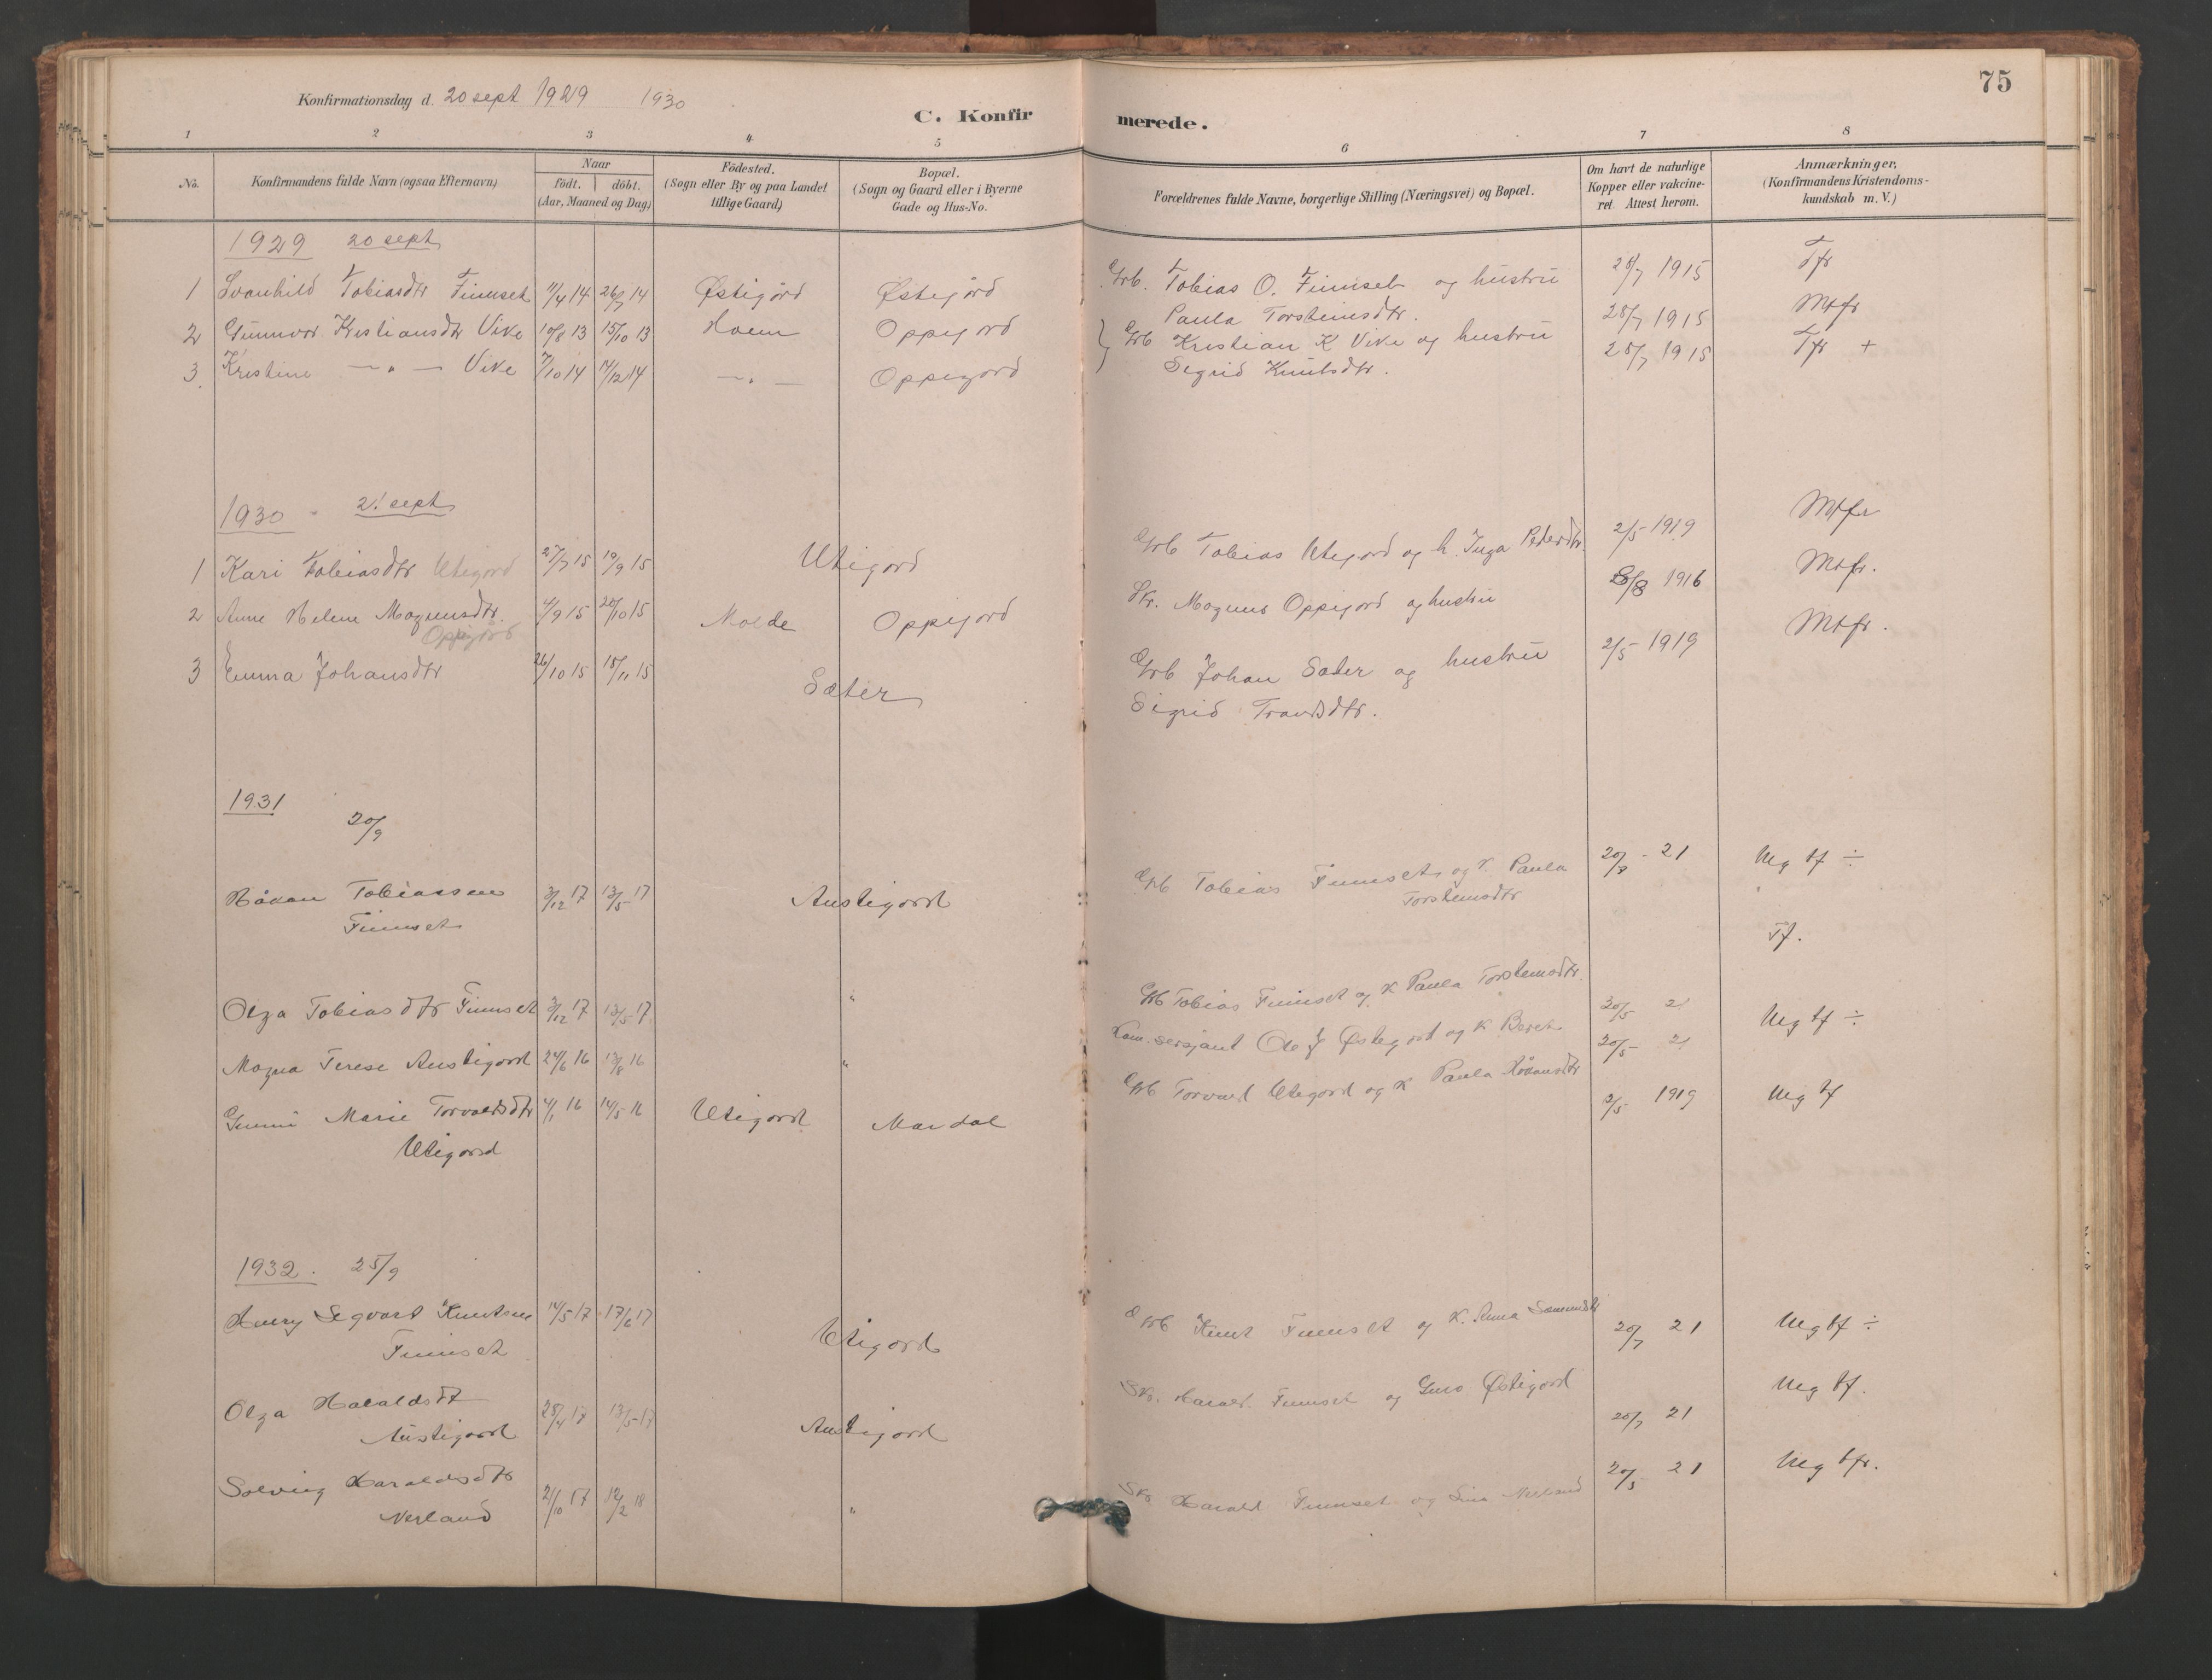 75
Konfirmationsdag d. 20 sept 1929 1930
C. Konfirmerede.
1 2 3 4 5 6 7 8
No.
Konfirmandens fulde Navn (ogsaa Efternavn)
Naar
födt. döbt.
(Aar, Maaned og Dag)
Födested.
(Sogn eller By og paa Landet
tillige Gaard)
Bopæl.
(Sogn og Gaard eller i Byerne
Gade og Hus-No.
Forældrenes fulde Navne, borgerlige Stilling (Næringsvei) og Bopæl.
Om havt de naturlige
Kopper eller vakcine-
ret. Attest herom.
Anmærkninger.
(Konfirmandens Kristendoms-
kundskab m. V.)
1929 20 sept
1 Svanhild Tobiasdtr Finnset 11/4 14 26/7 14 Østigård Østigård Grb. Tobias O. Finnset og hustru 28/7 1915 Tfr
Paula Torsteinsdtr.
2 Gunnvor Kristiansdtr Vike 10/8 13 15/10 13 Hoem Oppigord Grb Kristian K Vike og hustru 28/7 1915 Mtfr
3. Kristine —„— Vike 7/10 14 14/12 14 —„— Oppigord Sigrid Knutsdtr. 28/7 1915 Tfr +
1930 21 sept
1 Kari Tobiasdtr Utigord 27/7 15 19/9 15 Utigord Grb Tobias Utigord og h. Inga Pedersdtr. 2/5 1919 Mtfr
2 Anne Helene Magnusdtr. 4/9 15 20/10 15 Molde Oppigord Skr. Magnus Oppigord og hustru 8/8 1916 Mtfr.
Oppigård
3 Emma Johansdtr 26/10 15 15/11 15 Sæter Grb Johan Sæter og hustru 2/5 1919 Mtfr.
Sigrid Trondsdtr.
1931
20/9
Håkon Tobiassen 3/12 17 13/5 17 Austigord Grb Tobias Finnset og k. Paula 20/7 - 21 Meg tf ÷
Finnset Torsteinsdtr
Tf.
Olga Tobiasdtr Finnset 3/12 17 13/5 17 „ Grb Tobias Finnset og k Paula Torsteinsdtr. 20/5 21
Magna Terese Austigord 24/6 16 13/8 16 „ Kom. sersjant Ole J Østigord og k Beret 20/5 - 21 Meg tf ÷
Gunni Marie Torvaldsdtr 4/1 16 14/5 16 Utigord Mardal Grb Torvald Utigord og k Paula Håkonsdtr 2/5 1919 Meg tf
Utigord
1932. 25/9
Henry Segvart Knutsen 14/5 17 17/6 17 Utigord Grb Knut Finnset og k. Anna 20/7 21 Meg tf ÷
Finnset
Olga Haraldsdt 28/4 17 13/5 17 Austigord Skr. Harald Finnset og Guro Østigord 20/7 21 Meg tf.
Austigord
Solveig Haraldsdtr 21/10 17 12/2 18 „ Skr Harald Finnset og Nerland 20/5 21 Meg tfr.
Nerland